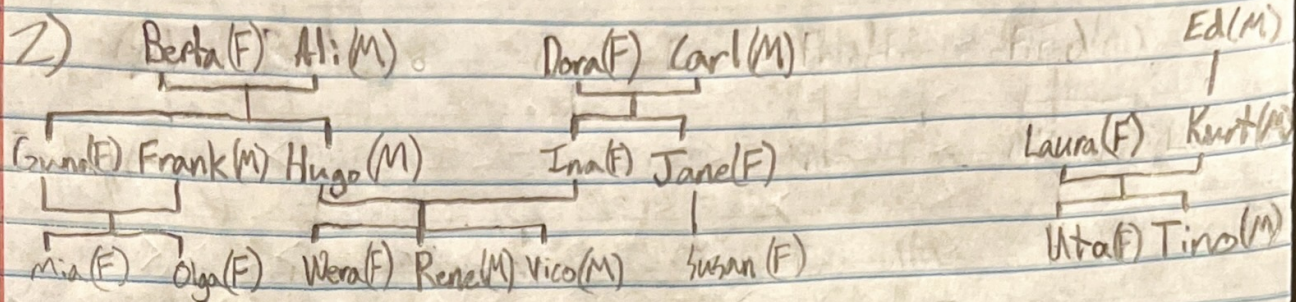 2) Berta(F) Ali(M) Dora(F) Carl(M) Ed(M)
Gunn(F) Frank(M) Hugo(M) Ina(F) Jane(F) Laura(F) Kurt(M)
Mia(F) Olga(F) Wera(F) Rene(M) Vico(M) Susan(F) Uta(F) Tino(M)